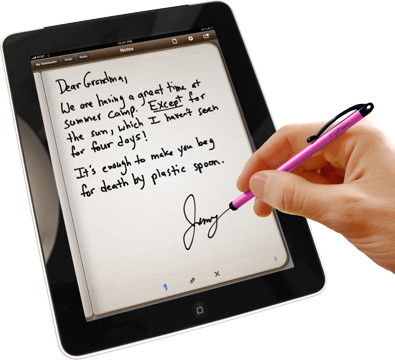 Notes
Dear Grandma,
We are having a great time at
summer camp. Except for
the sun, which I haven't seen
for four days!
It's enough to make you beg
for death by plastic spoon.
Jenny